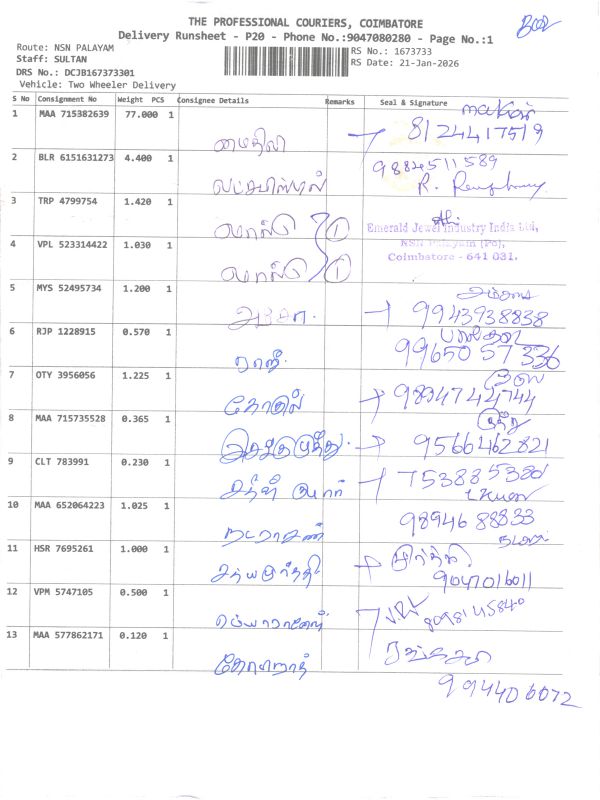 THE PROFESSIONAL COURIERS, COIMBATORE
Delivery Runsheet - P20 - Phone No.:9047080280 - Page No.:1
Route: NSN PALAYAM
RS No.: 1673733
Staff: SULTAN
RS Date: 21-Jan-2026
DRS No.: DCJB167373301
Vehicle: Two Wheeler Delivery
S No Consignment No Weight PCS Consignee Details Remarks Seal & Signature
1 MAA 715382639 77.000 1 மைதிலி 8124417519
2 BLR 6151631273 4.400 1 9884511589
3 TRP 4799754 1.420 1 1
Emerald Jewel Industry India Ltd,
NSN Palayam (Po),
Coimbatore - 641 031.
4 VPL 523314422 1.030 1 1
5 MYS 52495734 1.200 1 9943938838
6 RJP 1228915 0.570 1 ராஜி 9965057336
7 OTY 3956056 1.225 1 கோகுல்
8 MAA 715735528 0.365 1 இசக்குமுத்து 9566462821
9 CLT 783991 0.230 1 7538853
10 MAA 652064223 1.025 1 நடராசன் 9894688833
11 HSR 7695261 1.000 1 சத்யமூர்த்தி மூர்த்தி 9047016011
12 VPM 5747105 0.500 1 8098145840
13 MAA 577862171 0.120 1 கோபிநாத்
994406072